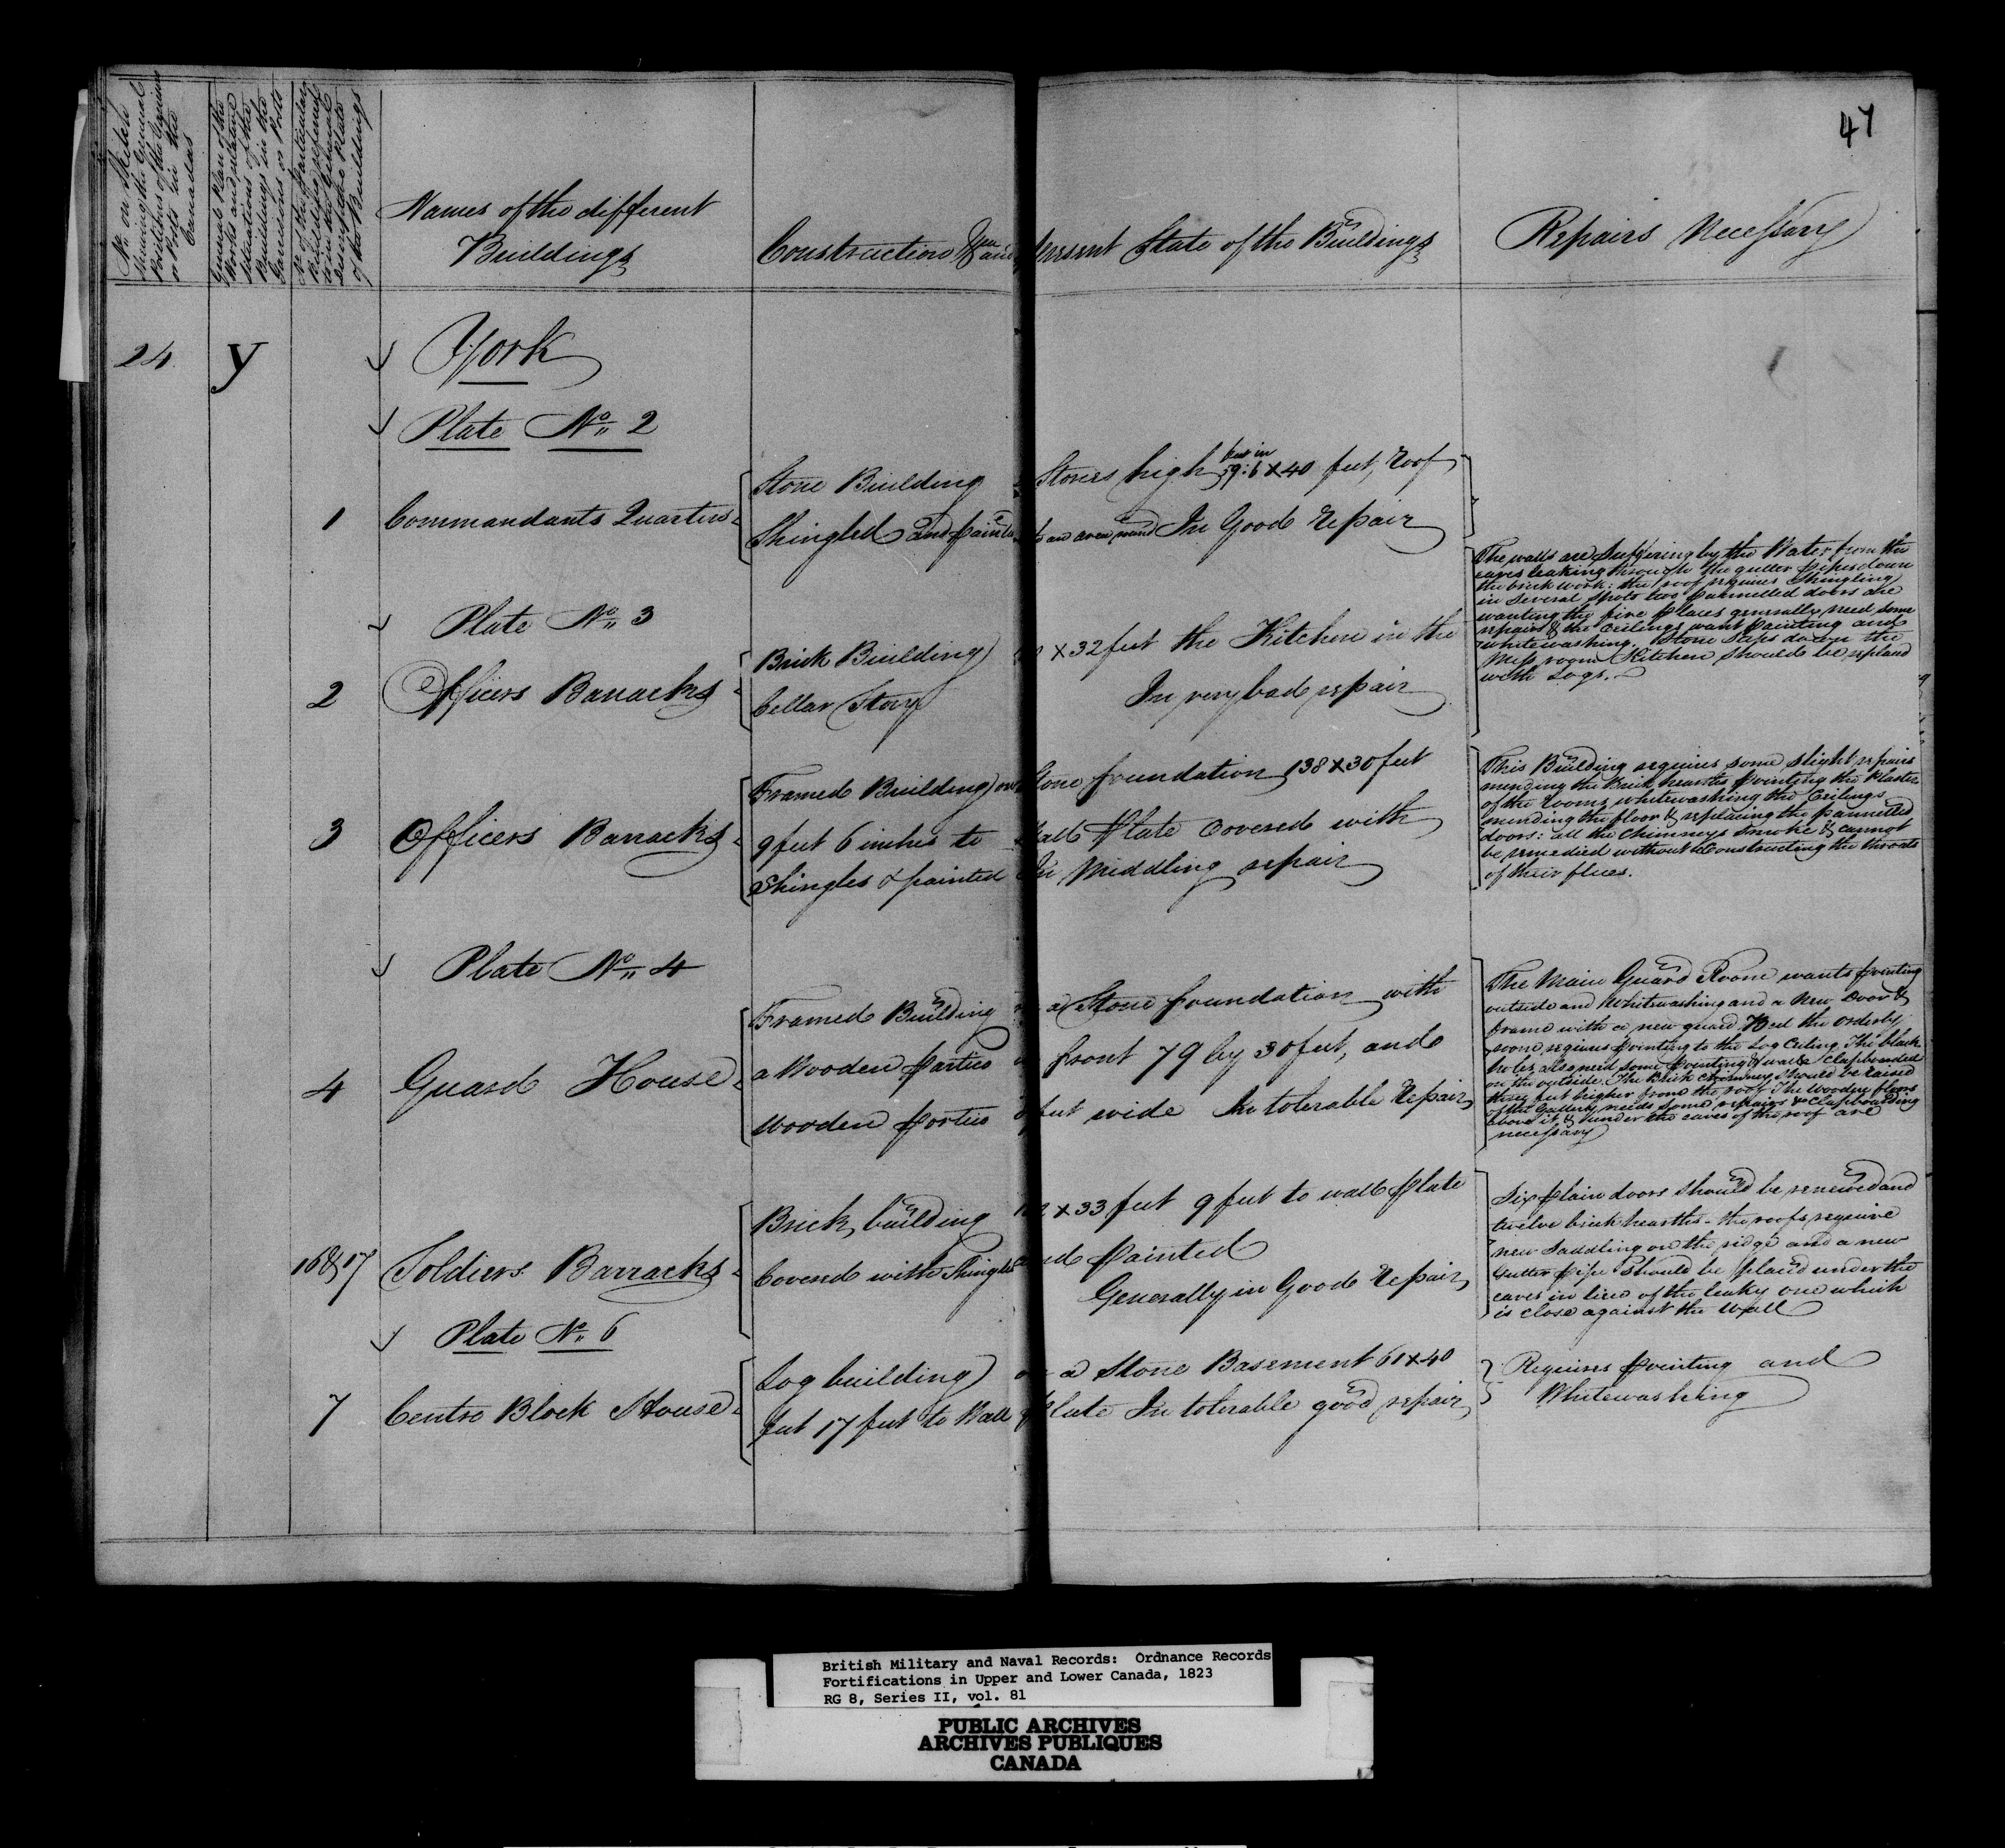 47
No. on Sketch
Shewing the General
Positions of the Frontier
or Posts in the
Canadas
General Plan of the
Works and relative
situations of the
Buildings in the
Garrisons or Posts
No. of the Particular
Buildings referred
to in the General
Descriptive Plate
of the Buildings
Names of the different
Buildings
Construction When and present State of the Buildings
Repairs Necessary
24 y York
Plate No. 2
1 Commandants Quarters
Stone Building Stories high 59:6 x 40 feet, Roof
Shingled and painted an area round In Good repair
Plate No. 3
2 Officers Barracks
Brick Building x 32 feet the Kitchen in the
Cellar Story In very bad repair
The walls are Suffering by the Water from the
eaves leaking through the gutter pipes down
the brick work: the roof requires Shingling
in Several Spots two pannelled doors are
wanting the fire places generally need some
repairs & the Ceilings want painting and
whitewashing. Stone Steps down the
Mess room Kitchen should be replaced
with Logs.
3 Officers Barracks
Framed Building on Stone foundation 138 x 30 feet
9 feet 6 inches to Wall plate covered with
Shingles & painted In Middling repair
This Building requires some slight repairs
mending the Brick hearths pointing the Plaster
of the Rooms, whitewashing the Ceilings
mending the floor & replacing the pannelled
doors: all the Chimneys Smoke & cannot
be remedied without Constructing the throats
of their flues.
Plate No. 4
4 Guard House
Framed Building on a Stone foundation with
a Wooden portico in front 79 by 30 feet, and
wooden portico feet wide In tolerable Repair
The Main Guard Room wants pointing
outside and Whitewashing and a New Door &
frame with a new guard Bed the Orderly
room requires pointing to the Log Ceiling. The black
holes also need some pointing & walls Clapboarded
on the outside. The Brick Chimney should be raised
three feet higher from the roof. The Wooden floors
of the Gallery needs some repairs & Clapboarding
above it & under the eaves of the roof are
necessary
16 & 17 Soldiers Barracks
Brick building x 33 feet 9 feet to wall plate
Covered with Shingles and painted
Generally in Good Repair
Six plain doors should be renewed and
twelve brick hearths - the roofs require
new Saddling on the ridge and a new
Gutter pipe should be placed under the
eaves in lieu of the leaky one which
is close against the Wall
Plate No. 6
7 Centre Block House
Log building on a Stone Basement 61 x 40
feet 17 feet to Wall plate In tolerable good repair
Requires pointing and
Whitewashing
British Military and Naval Records: Ordnance Records
Fortifications in Upper and Lower Canada, 1823
RG 8, Series II, vol. 81
PUBLIC ARCHIVES
ARCHIVES PUBLIQUES
CANADA